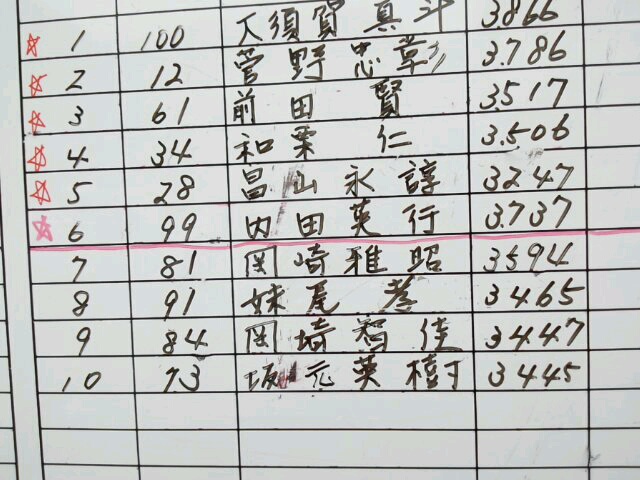 ☆ 1 100 大須賀 真斗 3.866
☆ 2 12 菅野忠彰 3.786
☆ 3 61 前田 賢 3.517
☆ 4 34 和栗 仁 3.506
☆ 5 28 昌山永諄 3.247
☆ 6 99 内田英行 3.737
7 81 岡崎雅昭 3.594
8 91 妹尾 孝 3.465
9 84 岡埼智佳 3.447
10 73 坂元英樹 3.445